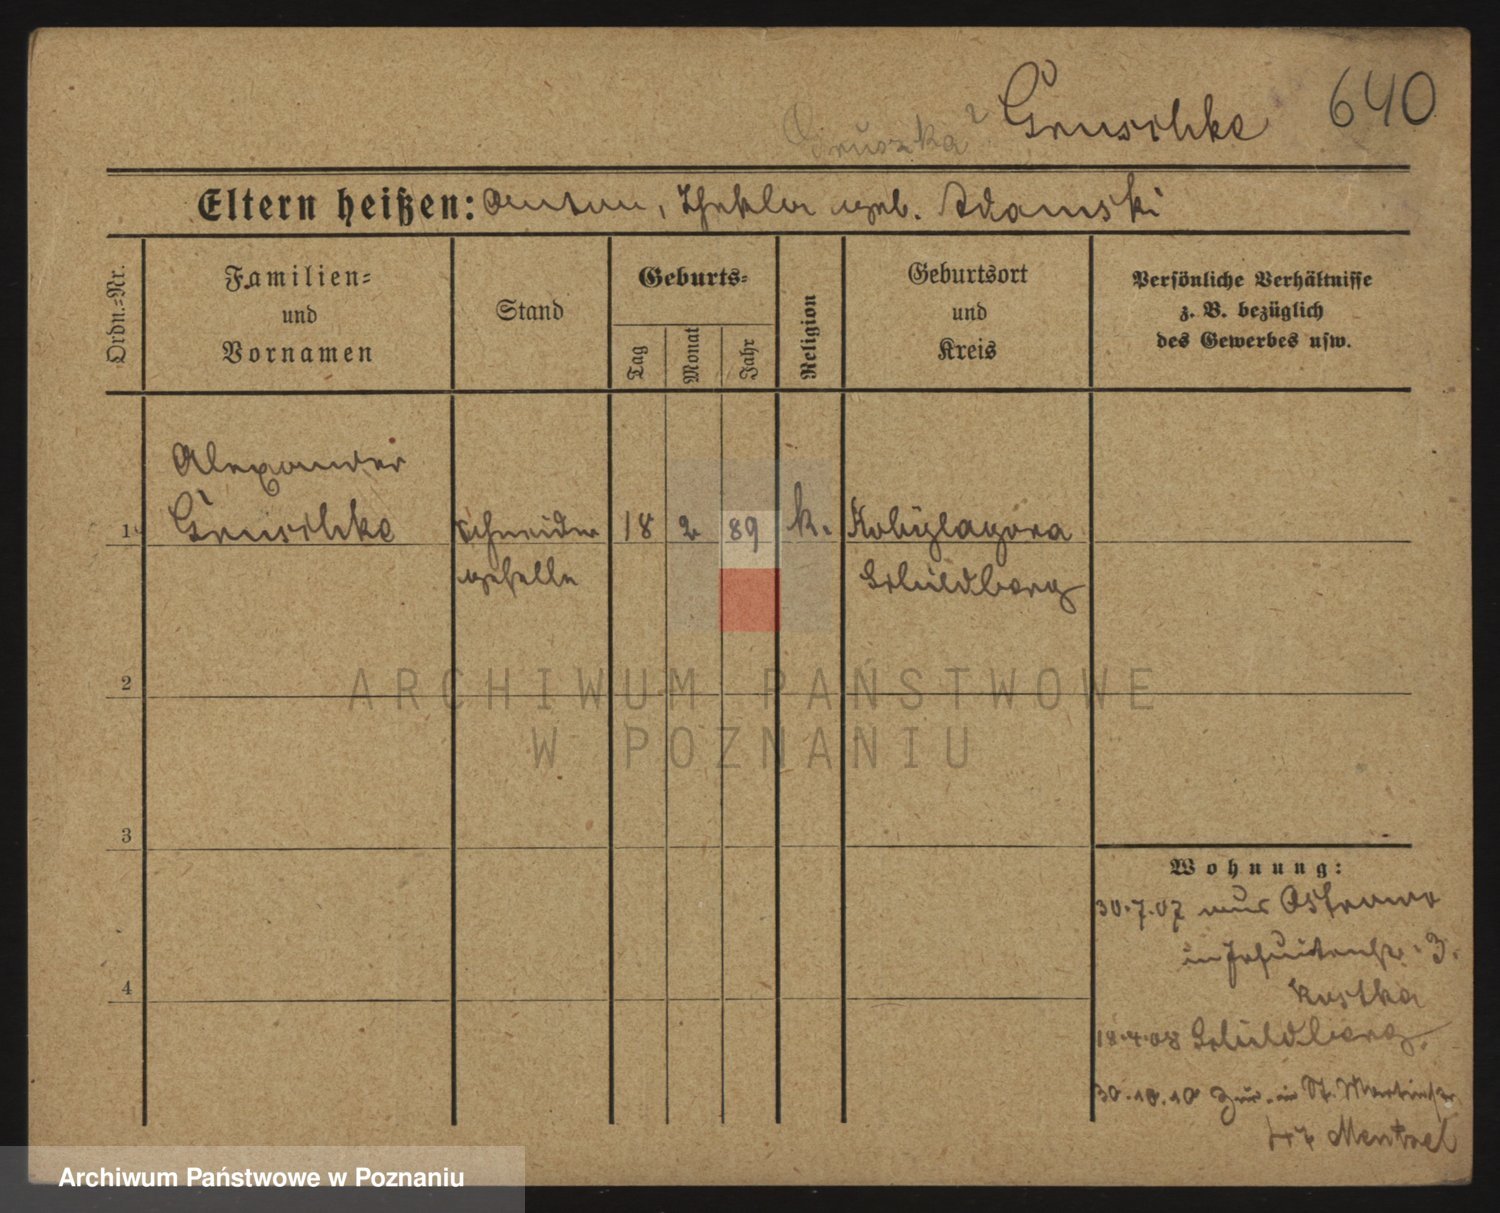 Gruszka ? Gruschke 640
Eltern heißen: Anton, Thekla geb. Adamski
Ordn.=Nr.
Familien=
und
Vornamen
Stand
Geburts=
Tag
Monat
Jahr
Religion
Geburtsort
und
Kreis
Persönliche Verhältnisse
z. B. bezüglich
des Gewerbes usw.
Alexander
1 Gruschke Schneider 18 2 89 k. Kobylagora
geselle Schildberg
2
ARCHIWUM PAŃSTWOWE
W POZNANIU
3
Wohnung:
30.7.07 aus Ostrowo
in Jesuitenstr. 3.
Kostka
4
18.4.08 Schildberg.
30.10.10 Zur. in St. Martinstr
Mentzel
Archiwum Państwowe w Poznaniu